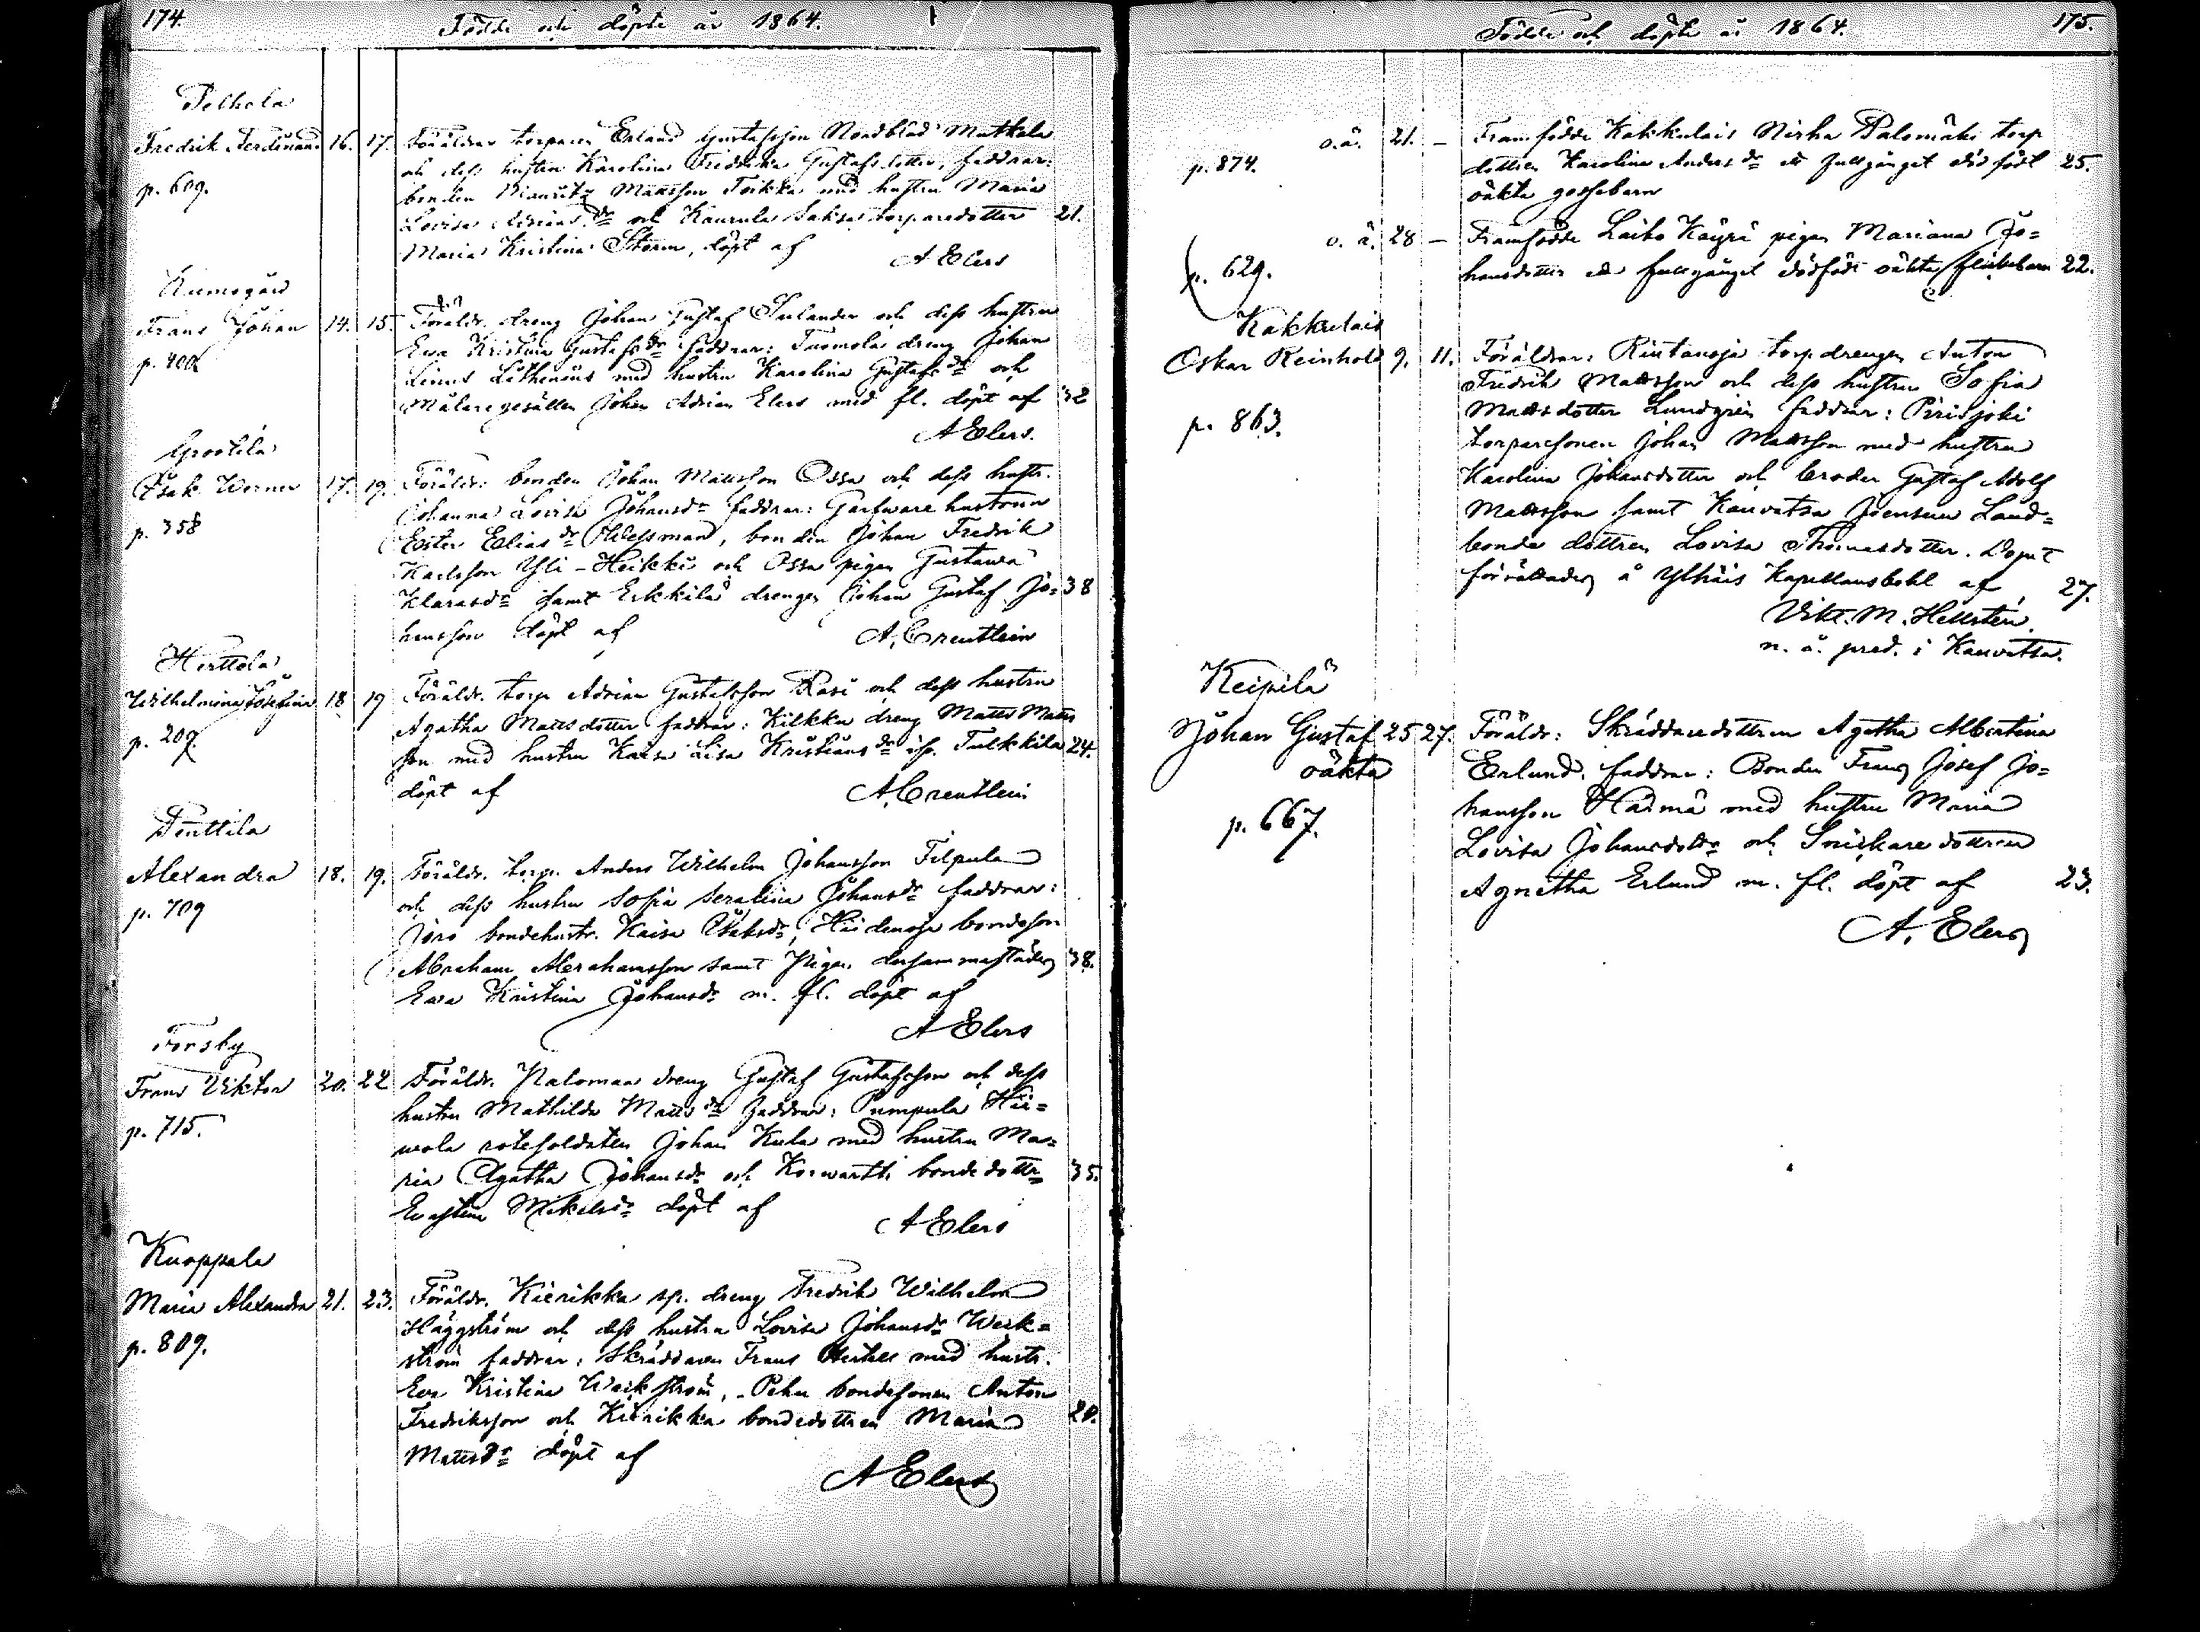 174.
Födde och döpte år 1864.
Pelhola
Fredrik Ferdinand 16. 17. Föräldrar torparen Erland Gustafsson Nordblad Mattela
och dess hustru Karolina Fredrika Gustafsdotter, faddrar:
p. 609. bonden Mauritz Mattsson Toikka med hustru Maria
Lovisa Adrians dr och Kaurula Saksa torparedotter 21.
Maria Kristina Storm, döpt af
A Elers
Kumogård
Frans Johan 14. 15. Föräldr. dreng Johan Gustaf Sulander och dess hustru
Ewa Kristina Gustafs dr faddrar: Tuomola dreng Johan
p. 400 Linus Lithenius med hustru Karolina Gustafs dr och
Målaregesällen Johan Adrian Elers med fl. döpt af 32
A Elers.
Grootila
Isak Werner 17. 19. Föräldr. bonden Johan Mattsson Ossa och dess hustr.
Johanna Lovisa Johansdr faddrar: Garfware hustrun
p. 358 Ester Elias dr Wessman, bonden Johan Fredrik
Karlsson Yli-Heikki och Ossa pigan Gustawa
Klarasdr samt Erkkilä drengen Johan Gustaf Jo= 38
hansson döpt af
A. Creutlein
Herttola
Wilhelmina Josefina 18. 19 Föräldr. torp. Adrian Gustafsson Rasi och dess hustru
Agatha Matts dotter faddrar: Kilkku dreng Matts Matts
p. 207. son med hustru Kaisa Lisa Kristians dr ifr. Tulkkila 24.
döpt af
A. Creutlein
Penttila
Alexandra 18. 19. Föräldr. torp. Anders Wilhelm Johansson Filpula
och dess hustru Sofia Serafina Johansdr faddrar:
p. 709 Jöro bondehustr. Kaisa Isaksdr, Haidenoja bondeson
Abraham Abrahamsson samt Pigan dersammastädes 38.
Ewa Kristina Johansdr m. fl. döpt af
A Elers
Forsby
Frans Viktor 20. 22 Föräldr. Naloman dreng Gustaf Gustafsson och dess
hustru Mathilda Mattsdr faddrar: Pumpula Hii=
p. 715. wola rotesoldaten Johan Kula med hustru Ma=
ria Agatha Johansdr och Korwartti bondedottr= 35.
Ewastina Mikelsdr döpt af
A Elers
Knoppala
Maria Alexandra 21. 23. Föräldr. Kierikka sp. dreng Fredrik Wilhelm
Häggström och dess hustru Lovisa Johansdr Weck=
p. 809. ström faddrar: Skräddaren Frans med hustr.
Eva Kristina Weckström, Pehu bondesonen Anton
Fredriksson och Kierikka bondedottren Maria 20.
Mattsdr döpt af
A Elers
Födde och döpte år 1864. 175.
o.ä. 21. – Framfödde Kakkulais Nirha Palomäki torp
p. 874. dottren Karolina Anders dr ett fullgånget dödfödt 25.
oäkta gossebarn
o. ä. 28 – Framfödde Laiho Käyrä pigan Mariana Jo=
p. 629. hansdotter ett fullgånget dödfödt oäkta flickebarn 22.
Kakkulais
Oskar Reinhold 9. 11. Föräldrar: Rintanoja torp drengen Anton
Fredrik Mattsson och dess hustru Sofia
p. 863. Mattsdotter Lundgren faddrar: Pirisjoki
torparesonen Johan Mattsson med hustru
Karolina Johansdotter och broder Gustaf Adolf
Mattsson samt Kauvatsa Joensuu Land=
bonde dottren Lovisa Thomasdotter. Dopet
förrättades å Ylhäis Kapellansbohl af 27.
Vikt. M. Hellstén.
n. å. pred. i Kauvatsa.
Keipilä
Johan Gustaf 25 27. Föräldr: Skräddaredottren Agatha Albertina
oäkta Erlund, faddrar: Bonden Frans Josef Jo=
hansson Haimä med hustru Maria
p. 667. Lovisa Johansdottr och Snickare dottren
Agnetha Erlund m. fl. döpt af 23.
A. Elers